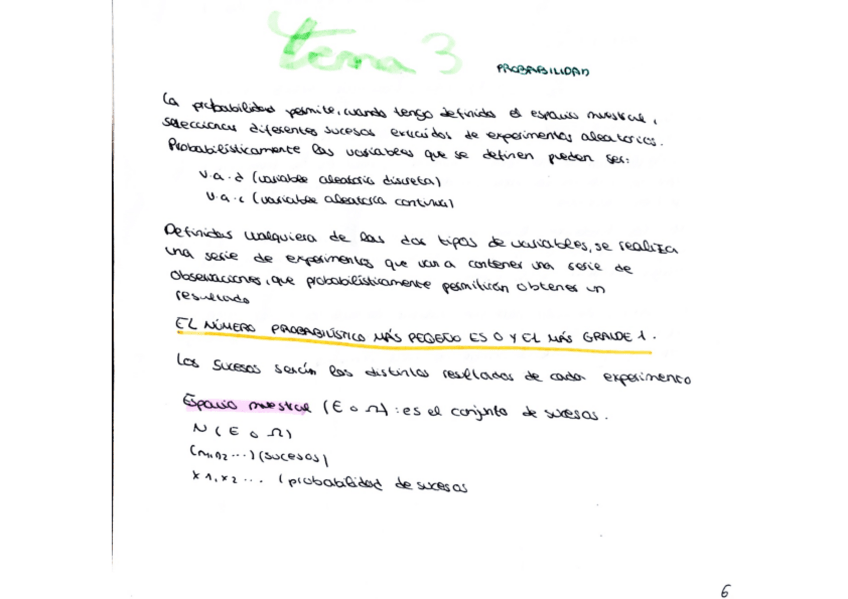 tema 3 PROBABILIDAD
La probabilidad permite, cuando tengo definido el espacio muestral,
seleccionar diferentes sucesos extraídos de experimentos aleatorios.
Probabilísticamente las variables que se definen pueden ser:
v.a.d (variable aleatoria discreta)
v.a.c (variable aleatoria continua)
Definidas cualquiera de las dos tipos de variables, se realiza
una serie de experimentos que van a contener una serie de
observaciones, que probabilísticamente permitirán obtener un
resultado
EL NÚMERO PROBABILÍSTICO MÁS PEQEÑO ES 0 Y EL MÁS GRANDE 1.
Los sucesos serían los distintos resultados de cada experimento
Espacio muestral (E o Ω): es el conjunto de sucesos.
N (E o Ω)
(n1, n2 ...) (sucesos)
x1, x2 ... (probabilidad de sucesos
6